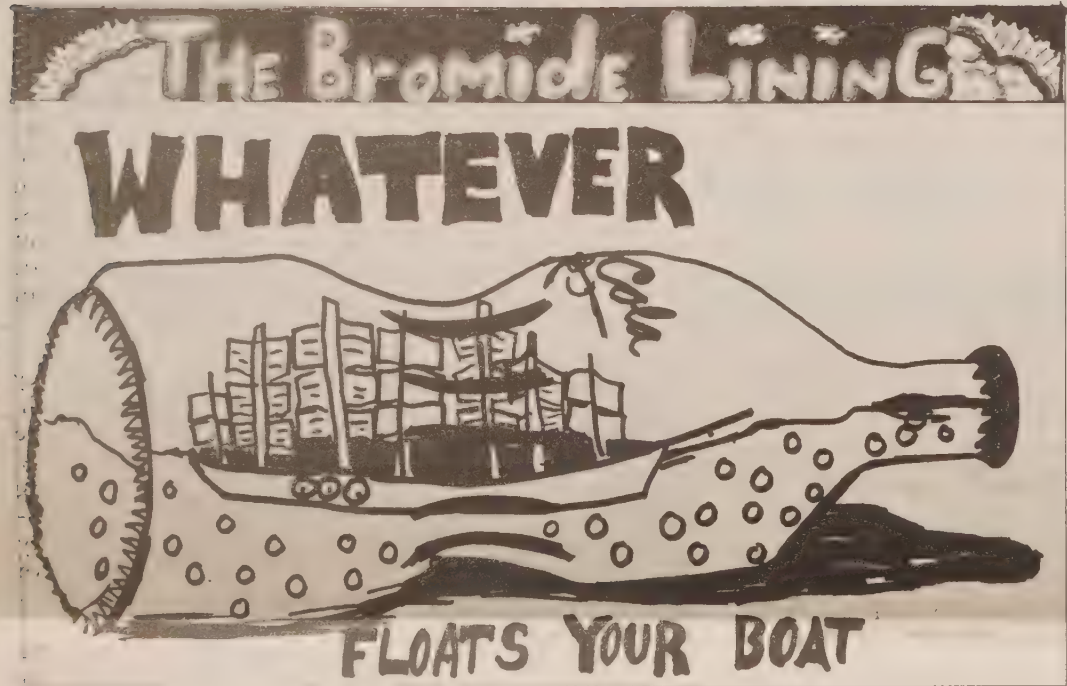 THE BROMIDE LINING
WHATEVER
Cola
FLOATS YOUR BOAT